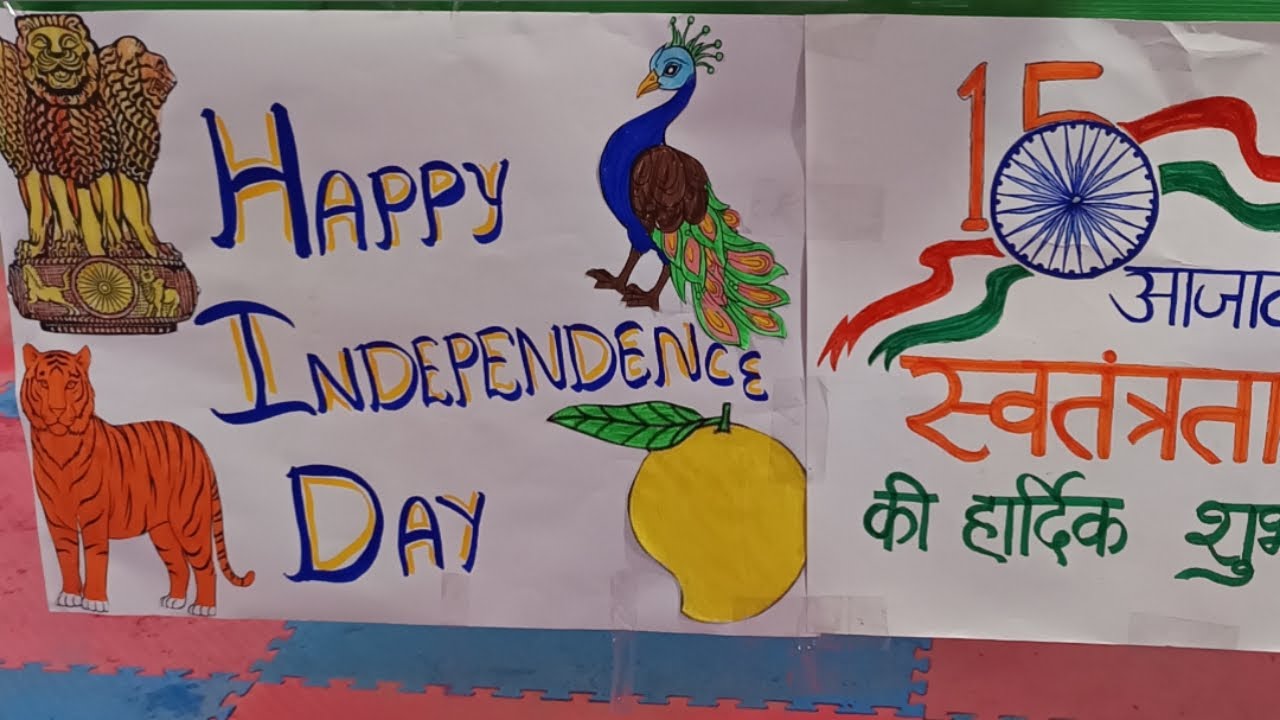 HAPPY
INDEPENDENCE
DAY
15
स्वतंत्रता
की हार्दिक